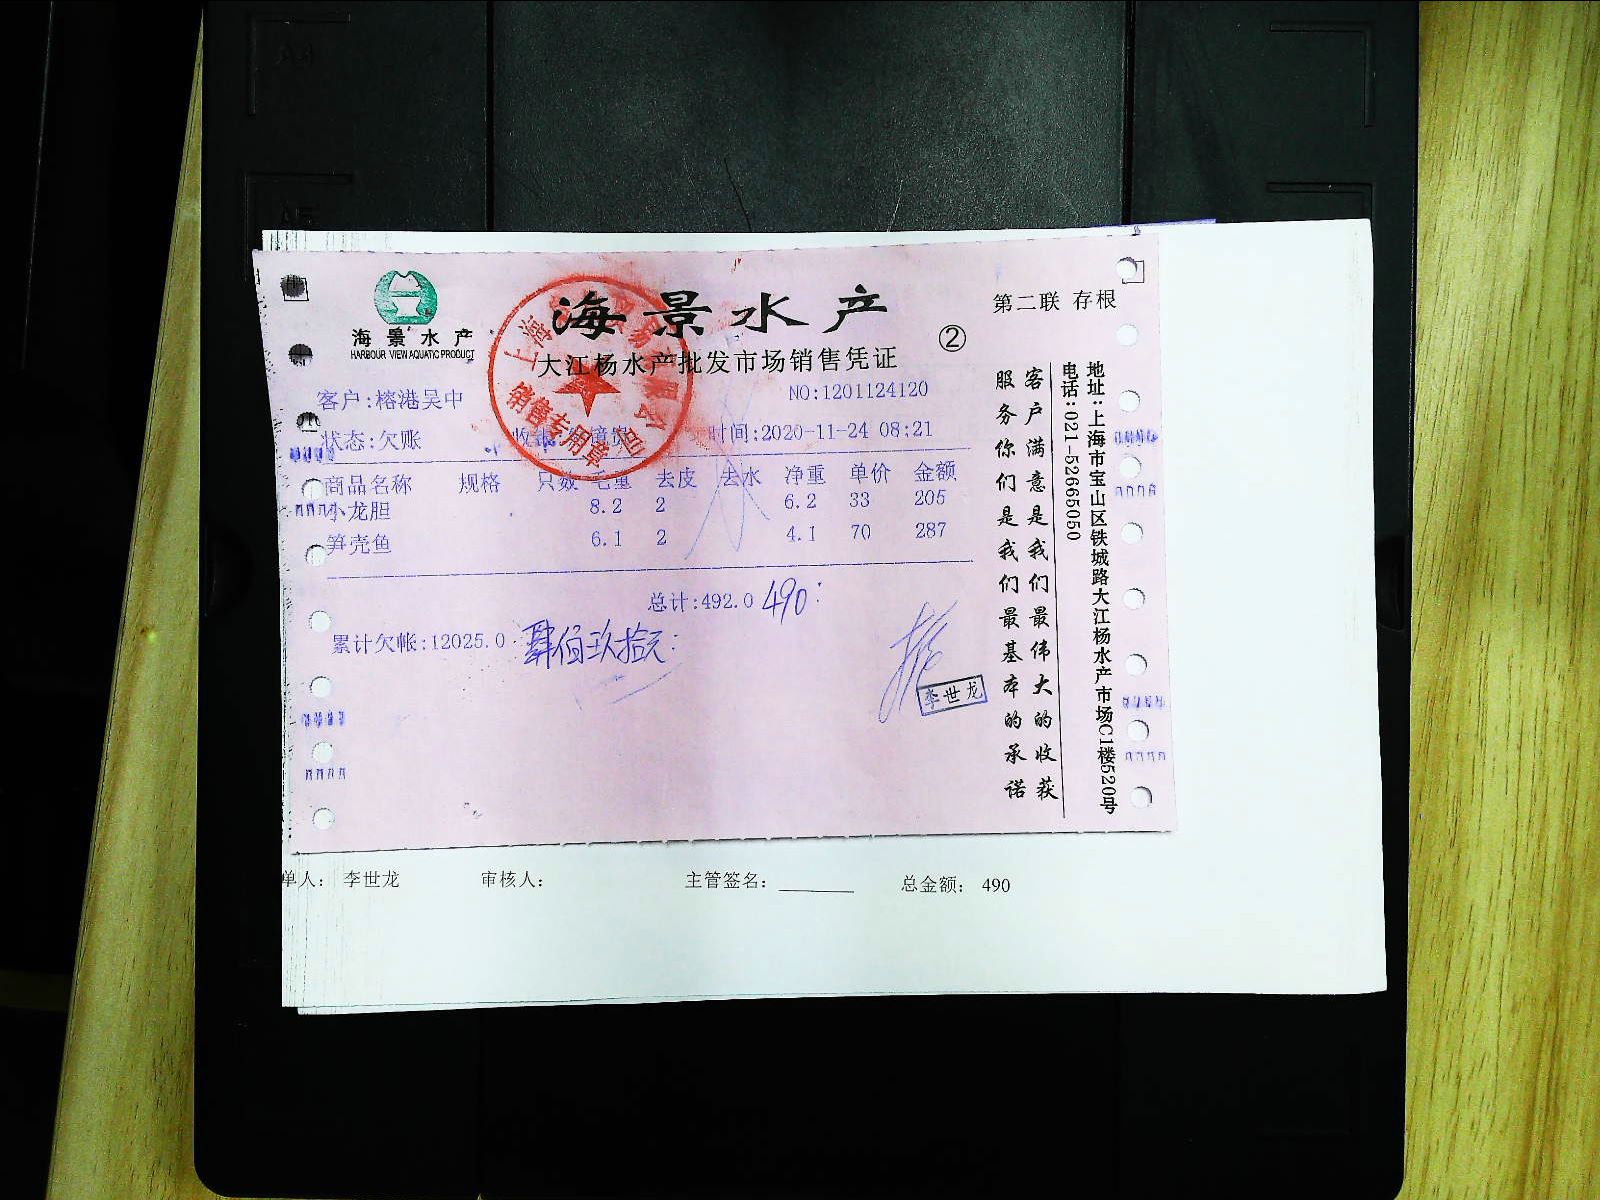 海景水产
HARBOUR VIEW AQUATIC PRODUCT
海景水产
大江杨水产批发市场销售凭证
②
第二联 存根
客户:榕港吴中
NO:1201124120
状态:欠账
时间:2020-11-24 08:21
销售专用章
商品名称 规格 只数 毛重 去皮 去水 净重 单价 金额
小龙胆 8.2 2 6.2 33 205
笋壳鱼 6.1 2 4.1 70 287
总计:492.0 490:
累计欠帐:12025.0 肆佰玖拾元:
李世龙
客户满意是我们最伟大的收获
服务你们是我们最基本的承诺
地址:上海市宝山区铁城路大江杨水产市场C1楼520号
电话:021-52665050
单人: 李世龙 审核人: 主管签名: 总金额: 490